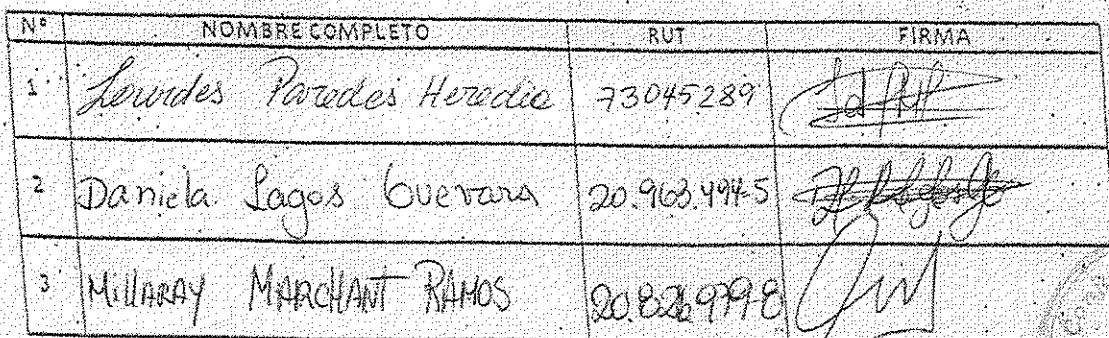 N° NOMBRE COMPLETO RUT FIRMA
1 Lourdes Paredes Heredia 73045289
2 Daniela Lagos Guevara 20.963.494-5
3 Millaray MARCHANT RAMOS 20.826.979-8